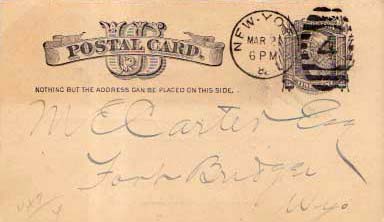 US
POSTAL CARD.
NOTHING BUT THE ADDRESS CAN BE PLACED ON THIS SIDE.
NEW-YO
MAR 2
6 PM
8
4
M E Carter Esq
Fort Bridger
Wyo